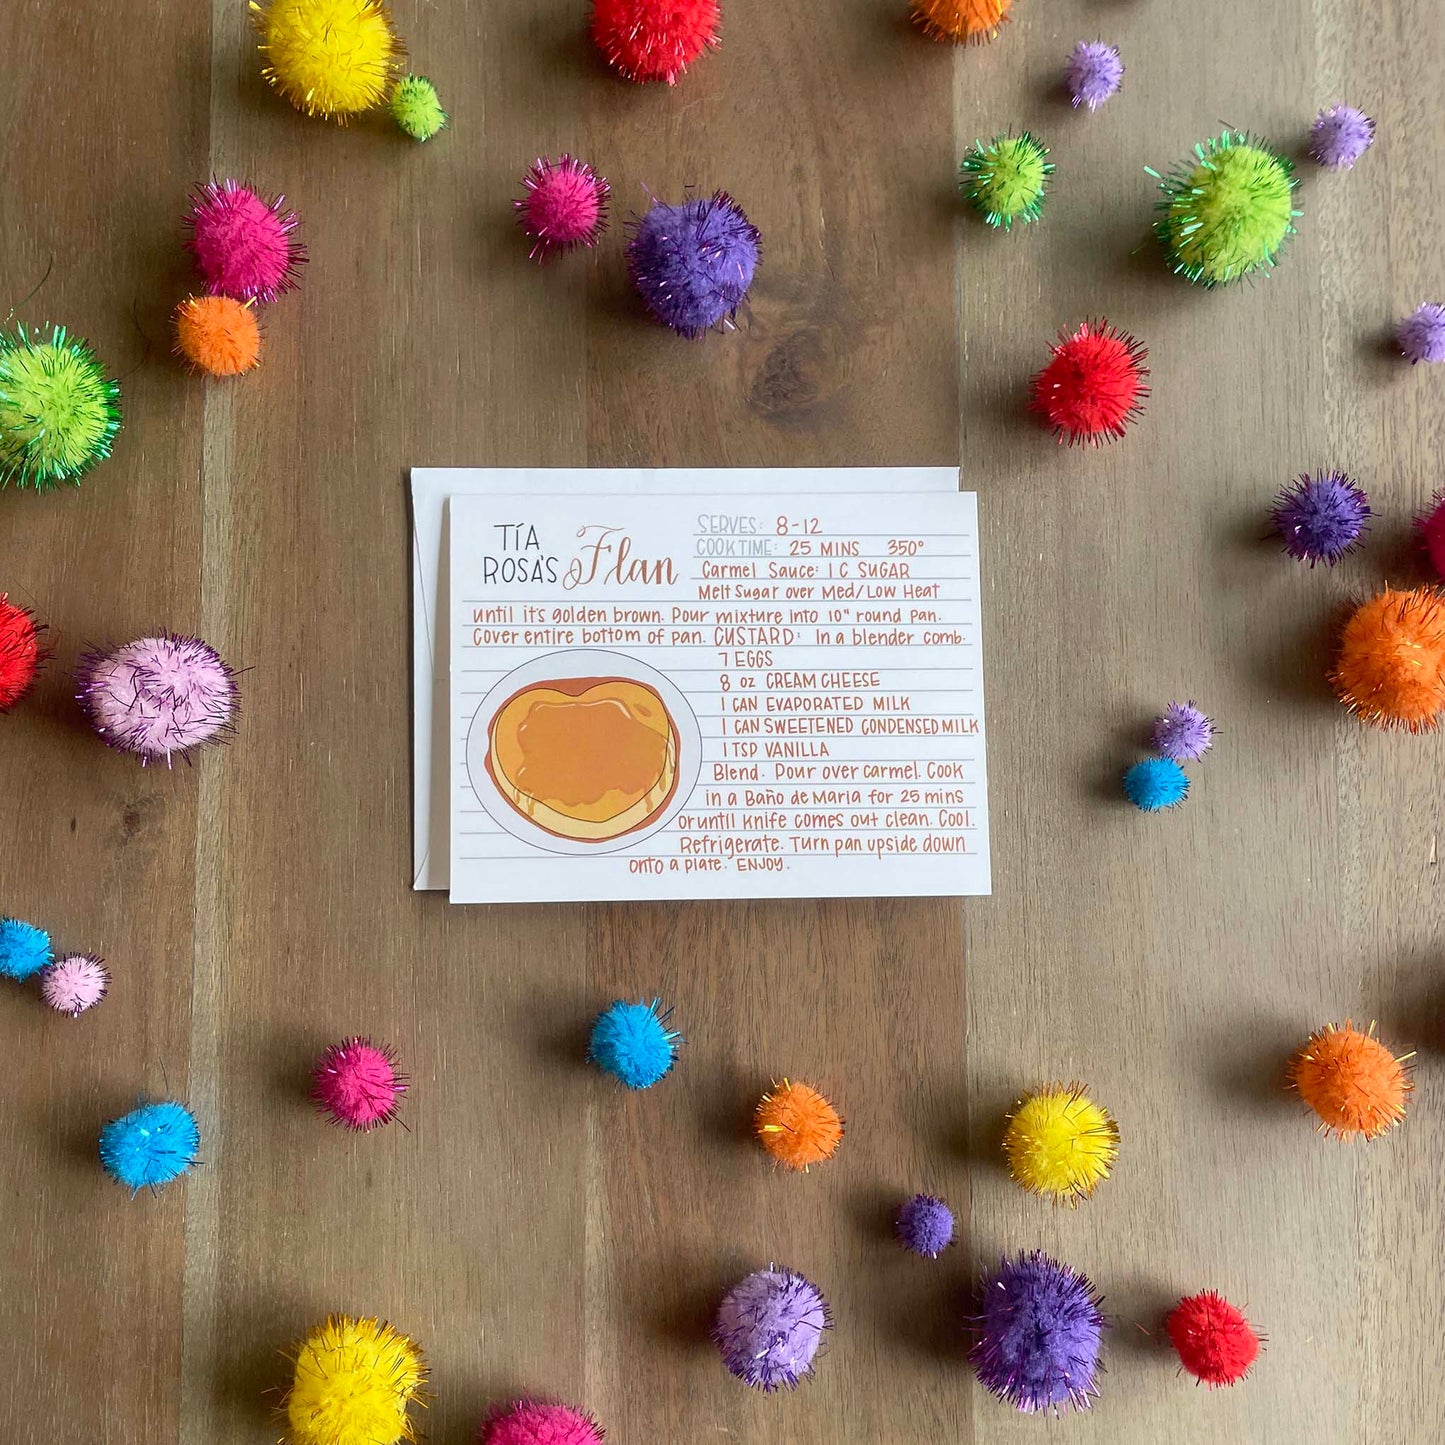 TÍA
ROSA'S Flan
SERVES: 8-12
COOK TIME: 25 MINS 350°
Carmel Sauce: 1 C SUGAR
Melt Sugar over Med/Low Heat
until it's golden brown. Pour mixture into 10" round pan.
Cover entire bottom of pan. CUSTARD: In a blender comb.
7 EGGS
8 oz CREAM CHEESE
1 CAN EVAPORATED MILK
1 CAN SWEETENED CONDENSED MILK
1 TSP VANILLA
Blend. Pour over carmel. Cook
in a Baño de Maria for 25 mins
or until knife comes out clean. Cool.
Refrigerate. Turn pan upside down
onto a plate. ENJOY.